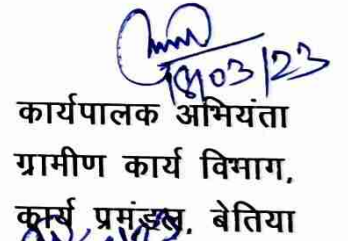 18/03/23
कार्यपालक अभियंता
ग्रामीण कार्य विभाग,
कार्य प्रमंडल, बेतिया